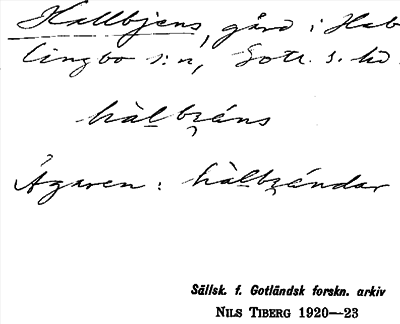 Hallbjens, gård i Hab
lingbo s:n, Gotl. s. hd.
hàlbzáns
Ägaren: hàlbzándar
Sällsk. f. Gotländsk forskn. arkiv
NILS TIBERG 1920—23